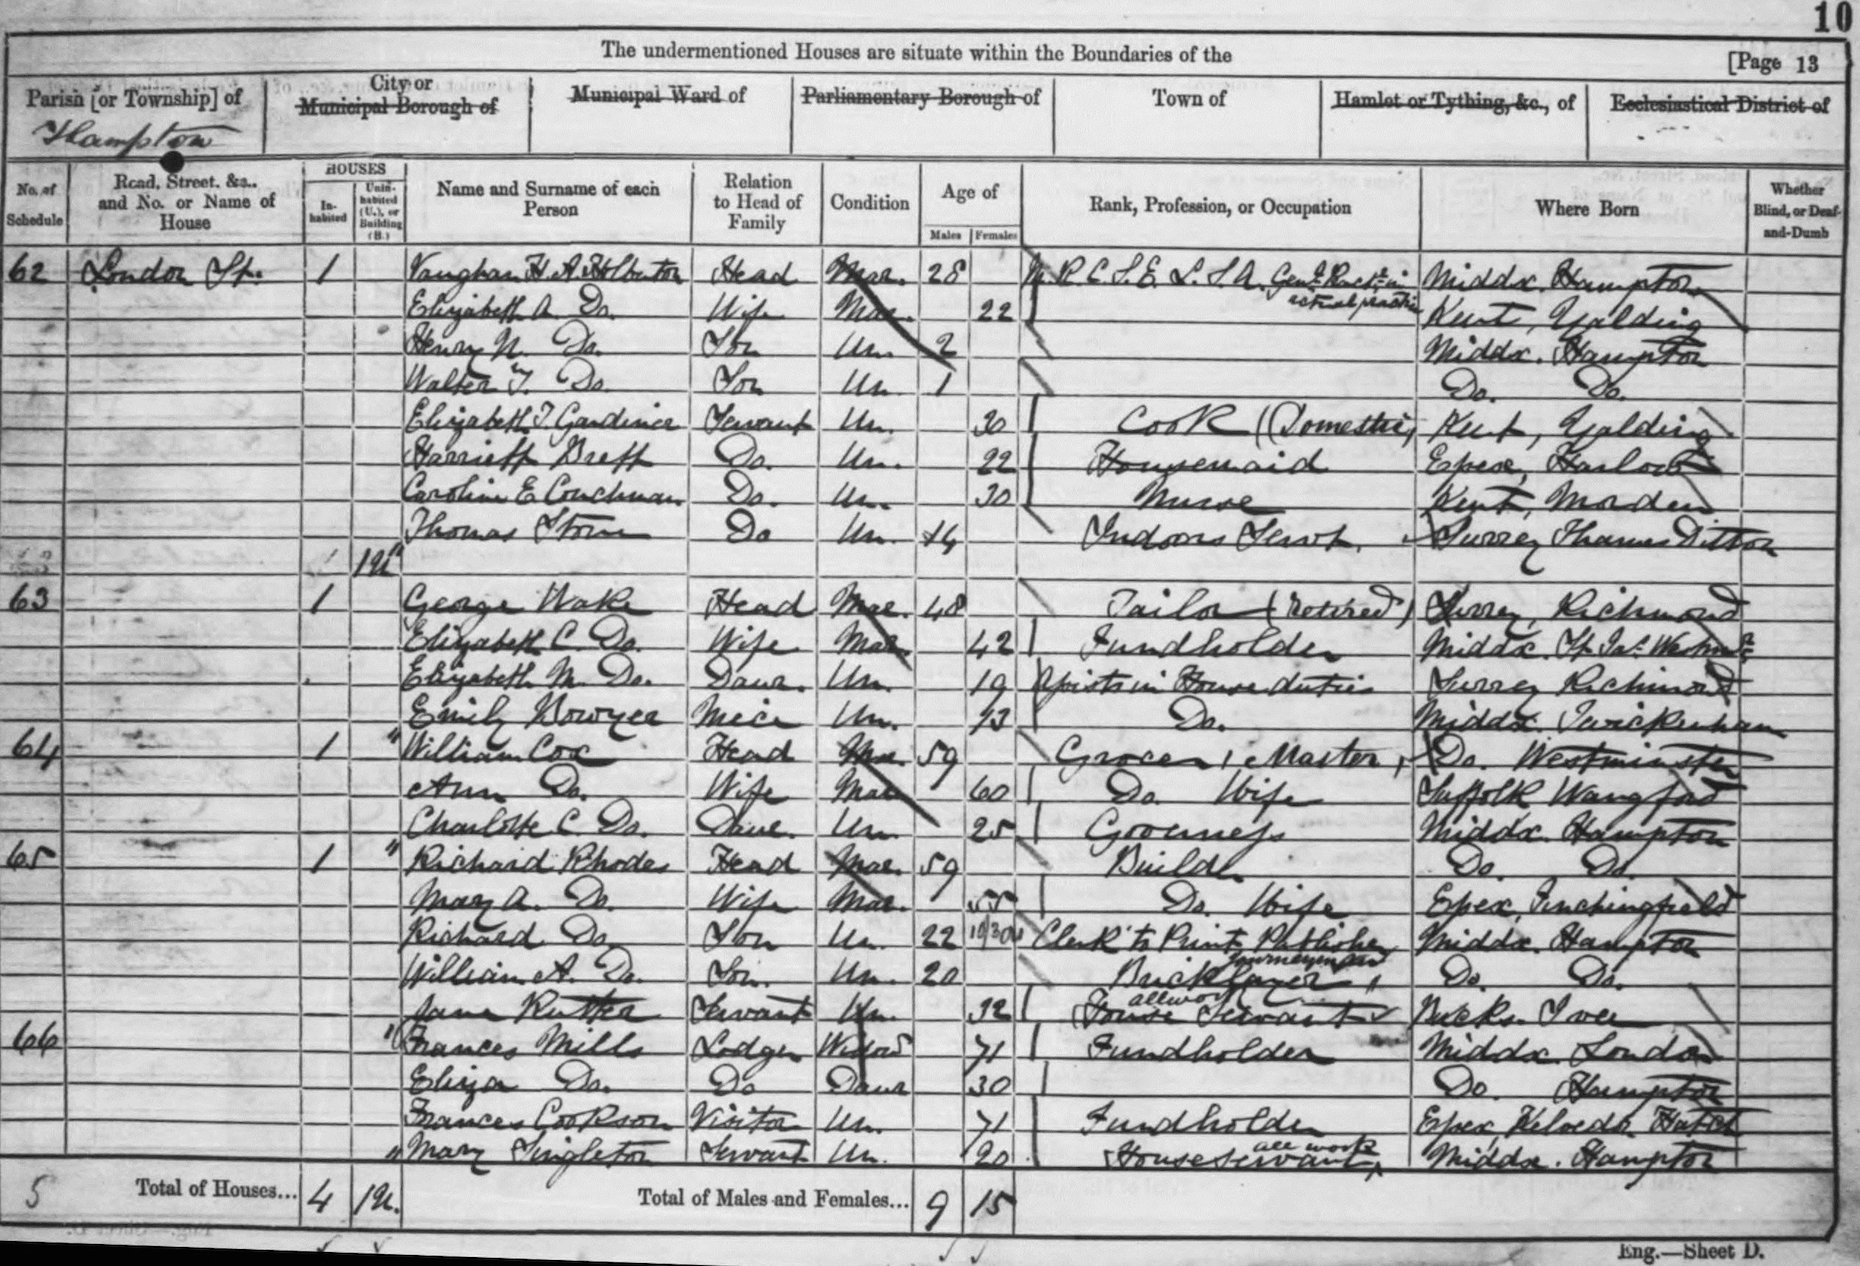 10
The undermentioned Houses are situate within the Boundaries of the
[Page 13
Parish [or Township] of
Hampton
City or
Municipal Borough of
Municipal Ward of
Parliamentary Borough of
Town of
Hamlet or Tything, &c., of
Ecclesiastical District of
No. of Schedule
Road, Street, &c., and No. or Name of House
HOUSES
In-habited
Unin-habited (U.), or Building (B.)
Name and Surname of each Person
Relation to Head of Family
Condition
Age of
Males Females
Rank, Profession, or Occupation
Where Born
Whether Blind, or Deaf-and-Dumb
62 London St. 1 Vaughan H. A. Holberton Head Mar. 28 M.R.C.S.E. L.S.A. Genl. Practr. in actual practice Middx. Hampton
Elizabeth A. Do. Wife Mar. 22 Kent, Yalding
Henry N. Do. Son Un. 2 Middx. Hampton
Walter T. Do. Son Un. 1 Do. Do.
Elizabeth T. Gardiner Servant Un. 30 Cook (Domestic) Kent, Yalding
Harriett Brett Do. Un. 22 Housemaid Essex, Harlow
Caroline E. Couchman Do. Un. 30 Nurse Kent, Morden
Thomas Do Un. 14 Indoors Servt. Surrey Thames Ditton
1U
63 1 George Wake Head Mar. 48 Tailor (retired) Surrey, Richmond
Elizabeth C. Do. Wife Mar. 42 Fundholder Middx. St. Jas. Westmr.
Elizabeth M. Do. Daur. Un. 19 Assists in House duties Surrey Richmond
Emily Bowyer Niece Un. 13 Do. Middx. Twickenham
64 1 " William Cox Head Mar. 59 Grocer, Master, Do. Westminster
Ann Do. Wife Mar. 60 Do. Wife Suffolk Wangford
Charlotte C. Do. Daur. Un. 25 Governess Middx. Hampton
65 1 " Richard Rhodes Head Mar. 59 Builder Do. Do.
Mary A. Do. Wife Mar. 55 Do. Wife Essex, Finchingfield
Richard Do. Son Un. 22 Clerk to Print Publisher Middx. Hampton
William A. Do. Son. Un. 20 Bricklayer, journeyman Do. Do.
Jane Rutter Servant Un. 32 House Servant allwork Bucks. Iver
66 " Frances Mills Lodger Widow 71 Fundholder Middx. London
Eliza Do. Do Daur 30 Do. Hampton
Frances Cookson Visitor Un. 71 Fundholder Essex, Kelvedon Hatch
" Mary Singleton Servant Un. 20 House servant all work Middx. Hampton
5 Total of Houses... 4 1U. Total of Males and Females... 9 15
Eng.—Sheet D.